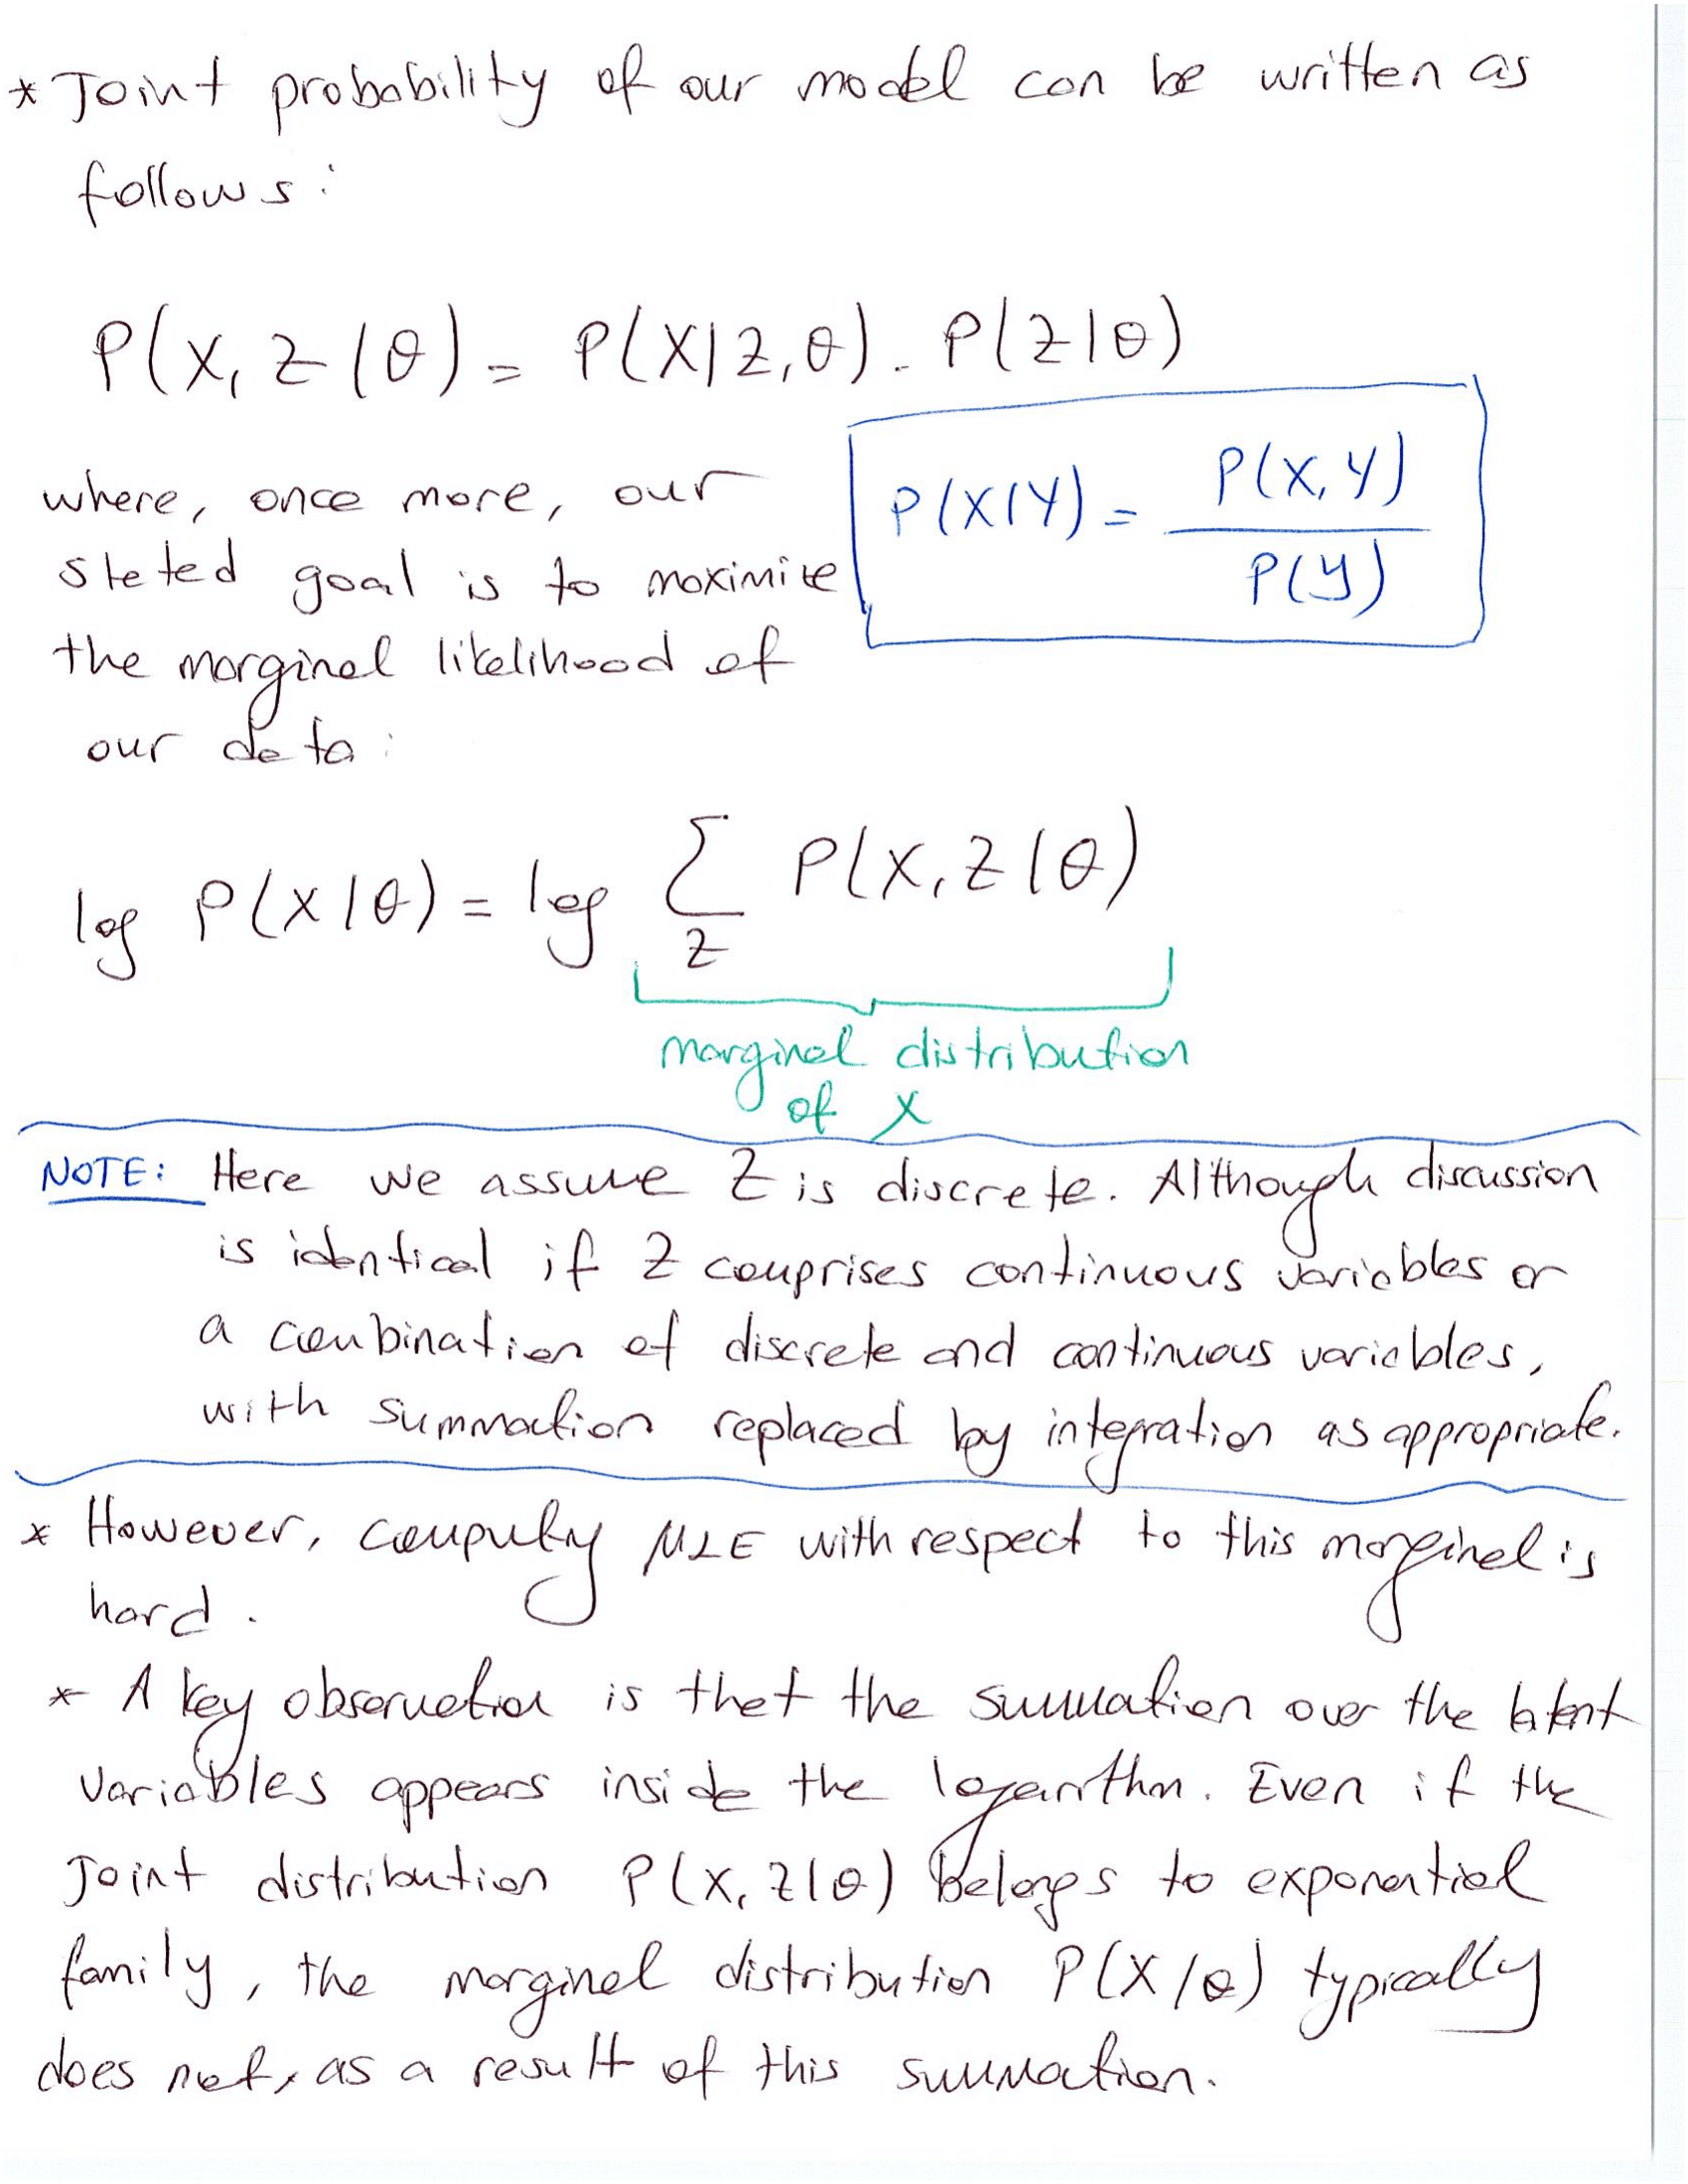 * Joint probability of our model can be written as
follows:
P(X, Z|θ) = P(X|Z,θ). P(Z|θ)
where, once more, our
stated goal is to maximize
the marginal likelihood of
our data:
P(X|Y) = P(X,Y) / P(Y)
log P(X|θ) = log ∑_Z P(X,Z|θ)
marginal distribution
of X
NOTE: Here we assume Z is discrete. Although discussion
is identical if Z comprises continuous variables or
a combination of discrete and continuous variables,
with summation replaced by integration as appropriate.
* However, computing MLE with respect to this marginal is
hard.
* A key observation is that the summation over the latent
variables appears inside the logarithm. Even if the
joint distribution P(X, Z|θ) belongs to exponential
family, the marginal distribution P(X|θ) typically
does not, as a result of this summation.